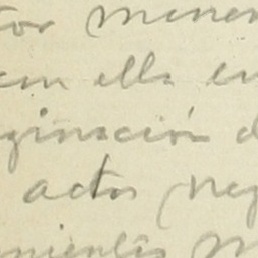 tor menen
ella en
ginación d
actos neg
mientos m